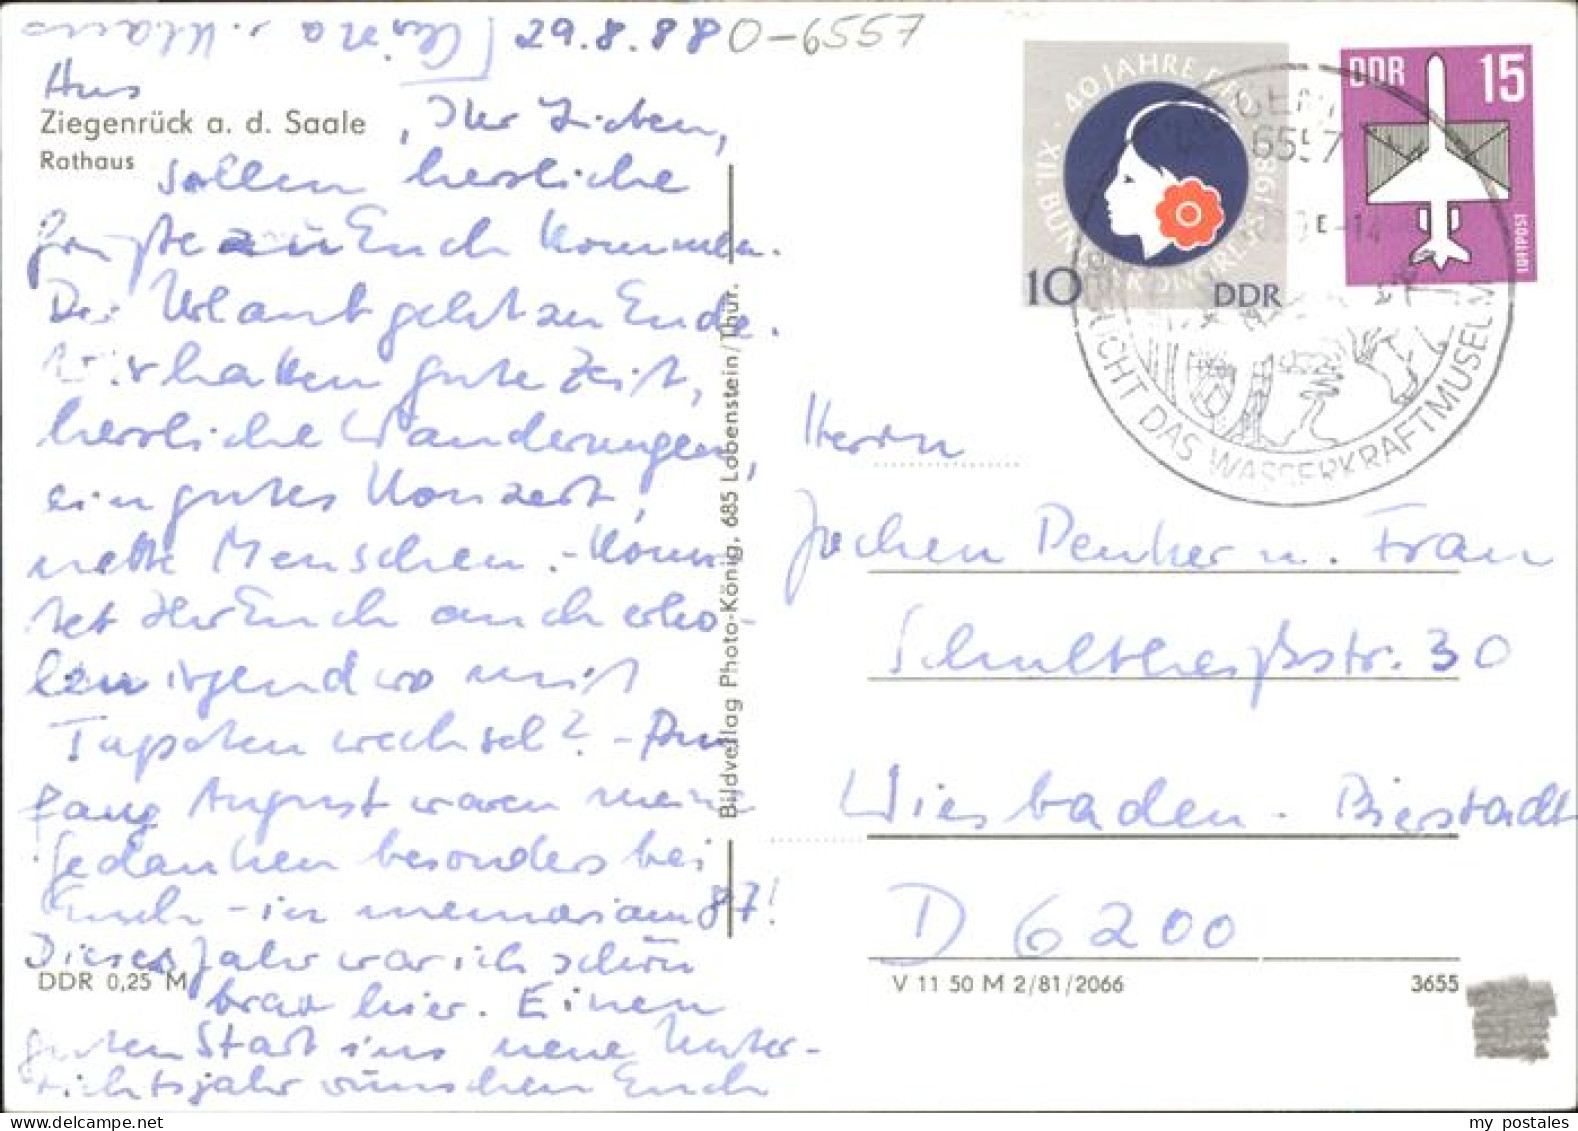 29.8.88 0-6557
Ziegenrück a. d. Saale
Rathaus
Ihr Lieben,
sollen herzliche
Grüße zu Euch kommen.
Der Urlaub geht zu Ende.
Wir hatten gute Zeit,
herzliche Wanderungen,
ein gutes Konzert,
nette Menschen. - Konn-
tet Ihr Euch auch erho-
len irgendwo mit
Tapetenwechsel? - An-
fang August waren meine
Gedanken besonders bei
Euch - in memoriam 87!
Dieses Jahr war ich schön
brav hier. Einen
guten Start ins neue Unter-
richtsjahr wünschen Euch
DDR 0,25 M
Bildverlag Photo-König, 685 Lobenstein/Thür.
XII. BUNDESKONGRESS 1987 · 40 JAHRE DFD
10 DDR
DDR 15
LUFTPOST
6557
DAS WASSERKRAFTMUSEUM
Herrn
Jochen Denker u. Frau
Schultheißstr. 30
Wiesbaden-Bierstadt
D 6200
V 11 50 M 2/81/2066
3655
my postales